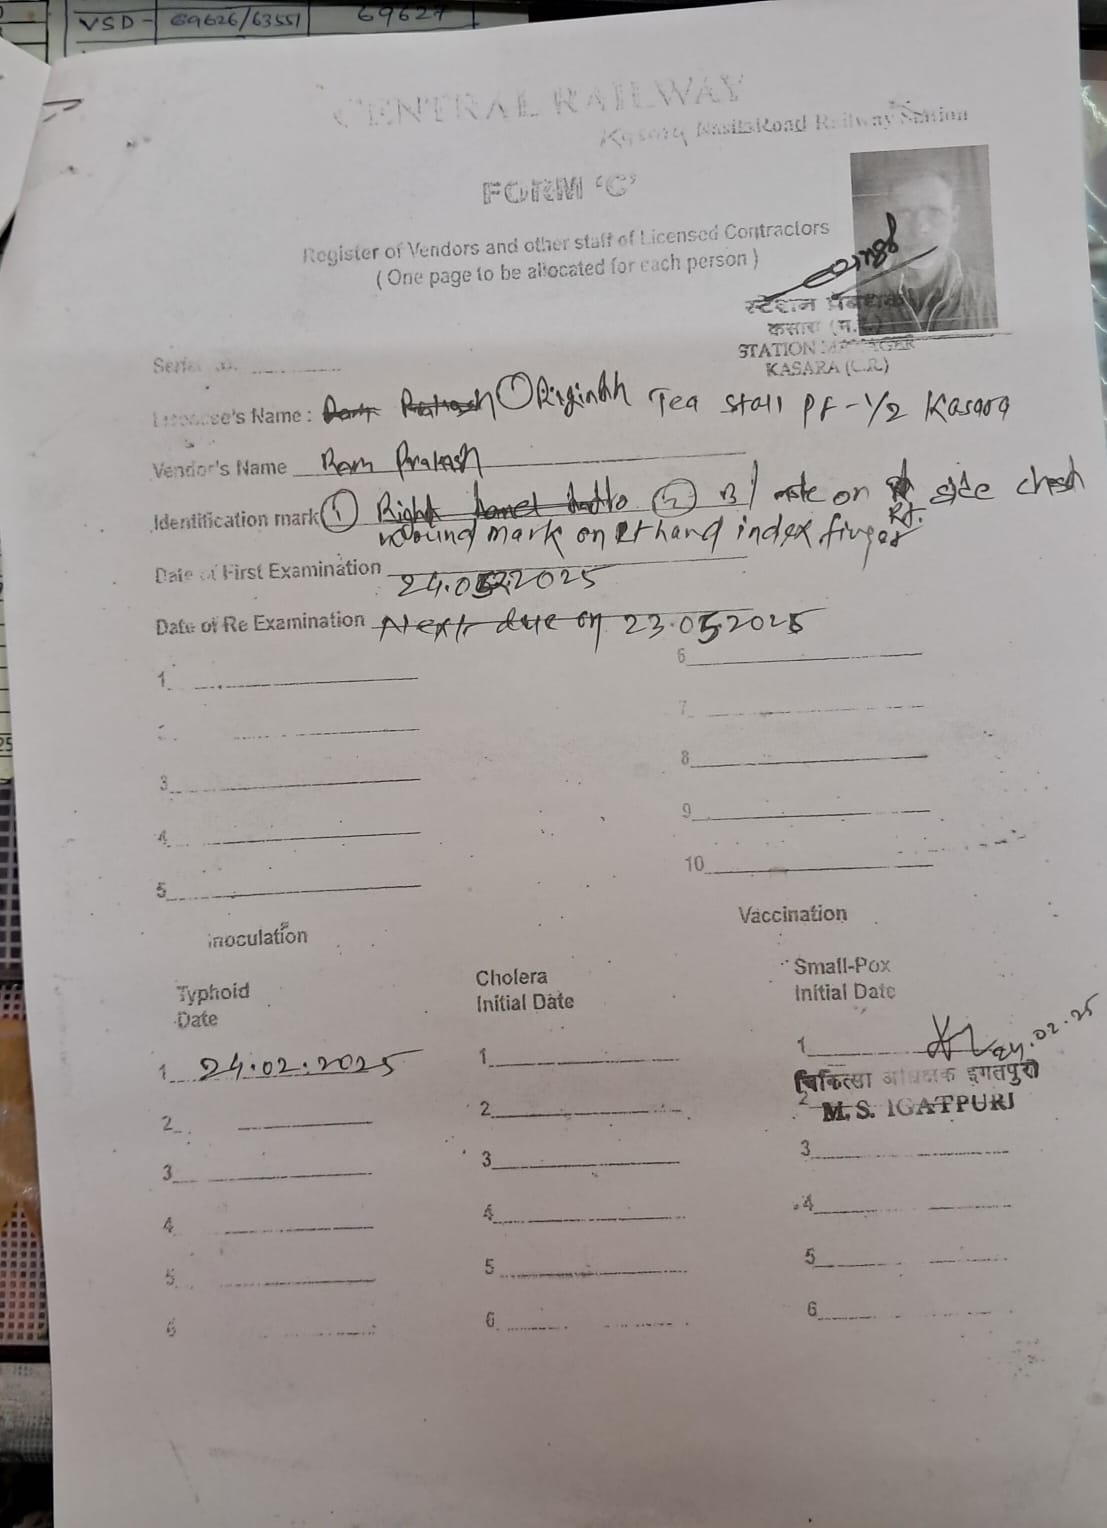 VSD - 69626/63551 69627
CENTRAL RAILWAY
Kasara NasikRoad Railway Station
FORM 'C'
Register of Vendors and other staff of Licensed Contractors
( One page to be allocated for each person )
स्टेशन प्रबंधक
कसारा (म.
STATION MANAGER
KASARA (C.R.)
Licencee's Name : Prakash ① Tea Stall PF-1/2 Kasara
Vendor's Name Ram Prakash
Identification mark ① Right ② B/ mole on side chest
wound mark on Rt hand index finger Rt.
Date of First Examination 24.02.2025
Date of Re Examination Next due on 23.05.2025
1. 6
2. 7
3 8
4 9
5 10
Inoculation Vaccination
Typhoid Cholera Small-Pox
Date Initial Date Initial Date
1 24.02.2025 1 1 24.02.25
चिकित्सा अधिक्षक इगतपुरी
2 2 2 M. S. IGATPURI
3 3 3
4 4 4
5 5 5
6 6 6